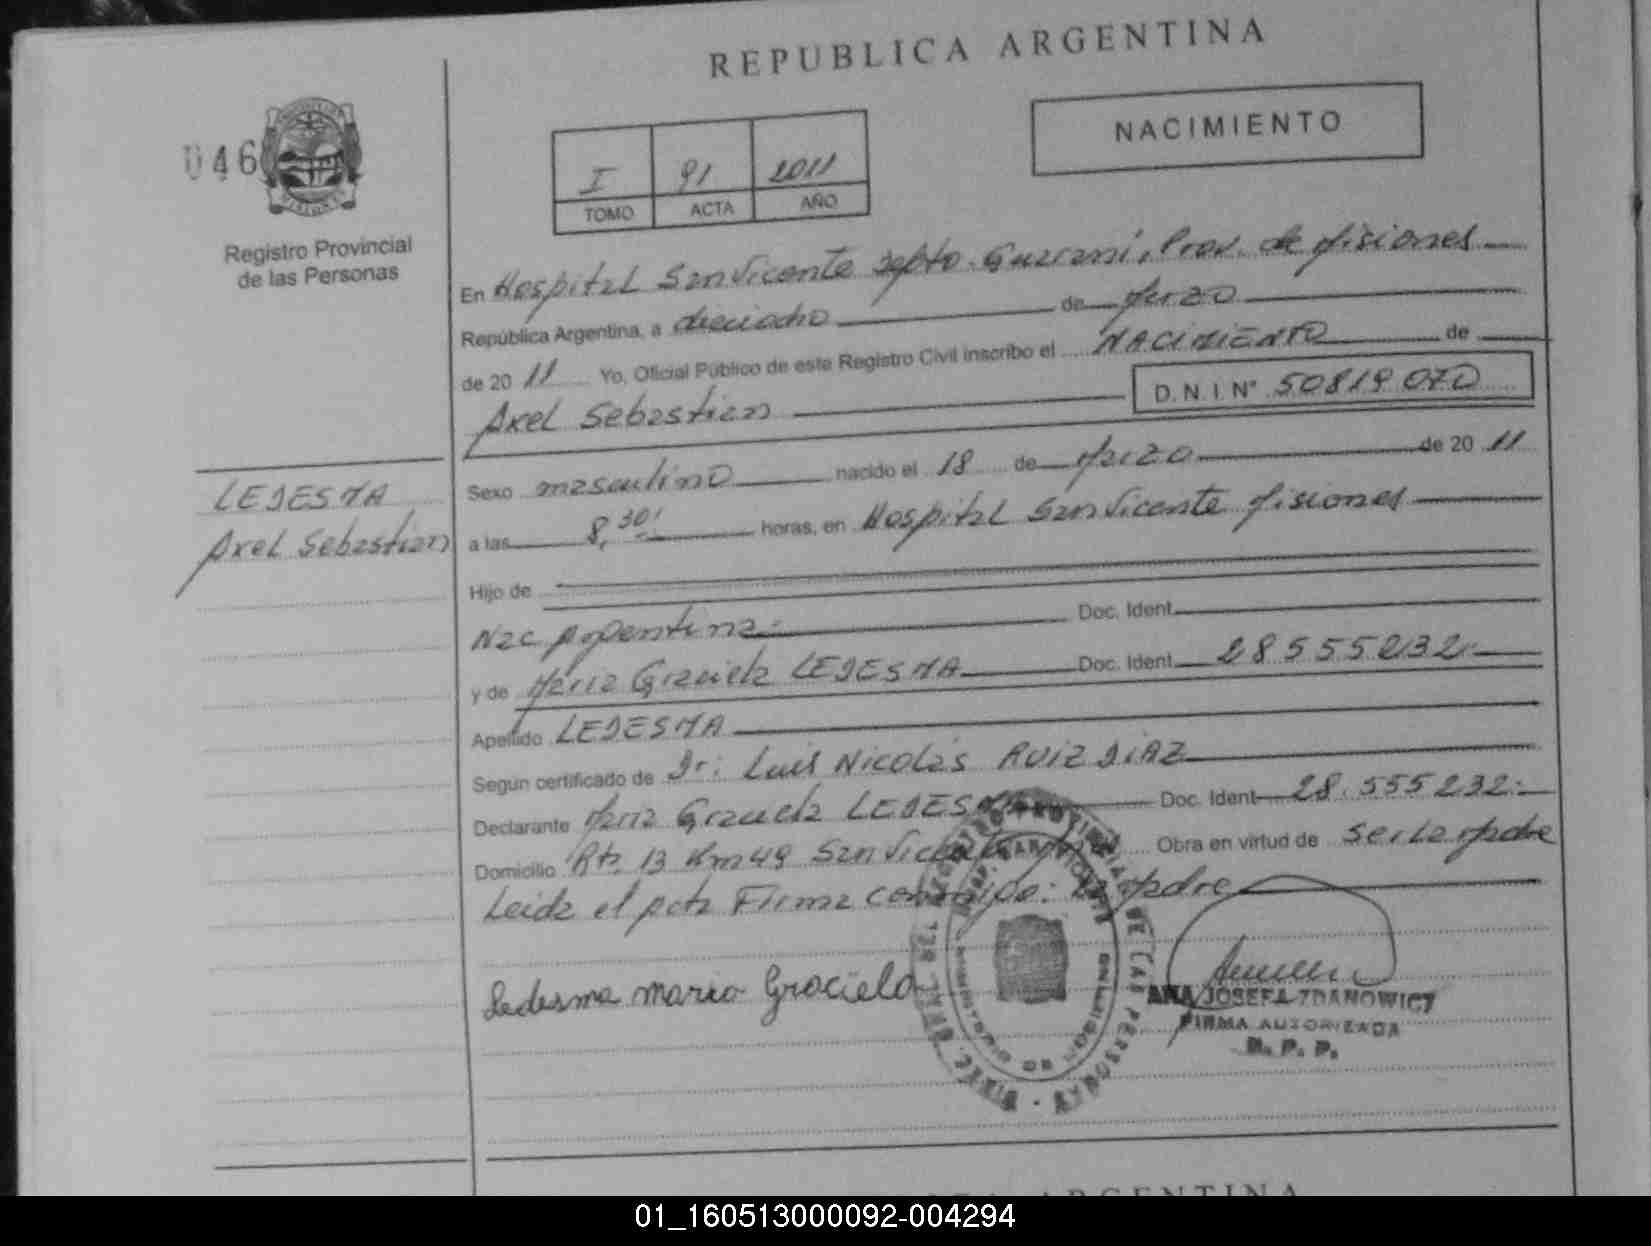 REPUBLICA ARGENTINA
046
NACIMIENTO
I 91 2011
TOMO ACTA AÑO
Registro Provincial
de las Personas
En Hospital San Vicente Depto. Guarani, Prov. de Misiones
República Argentina, a dieciocho de Marzo
de 2011 Yo, Oficial Público de este Registro Civil inscribo el NACIMIENTO de
Axel Sebastian D.N.I. N° 50819070
LEDESMA
Axel Sebastian
Sexo masculino nacido el 18 de Marzo de 2011
a las 8,30' horas, en Hospital San Vicente Misiones
Hijo de
Nac Argentina.- Doc. Ident.
y de María Graciela LEDESMA Doc. Ident. 28555232.-
Apellido LEDESMA
Según certificado de Dr: Luis Nicolás RUIZ DIAZ
Declarante María Graciela LEDESMA Doc. Ident. 28.555232.-
Domicilio Rta 13 Km 49 San Vicente Obra en virtud de ser la Madre
Leida el Acta Firma conmigo: La Madre
Ledesma maria Graciela
ANA JOSEFA ZDANOWICZ
FIRMA AUTORIZADA
R. P. P.
ARGENTINA
01_160513000092-004294